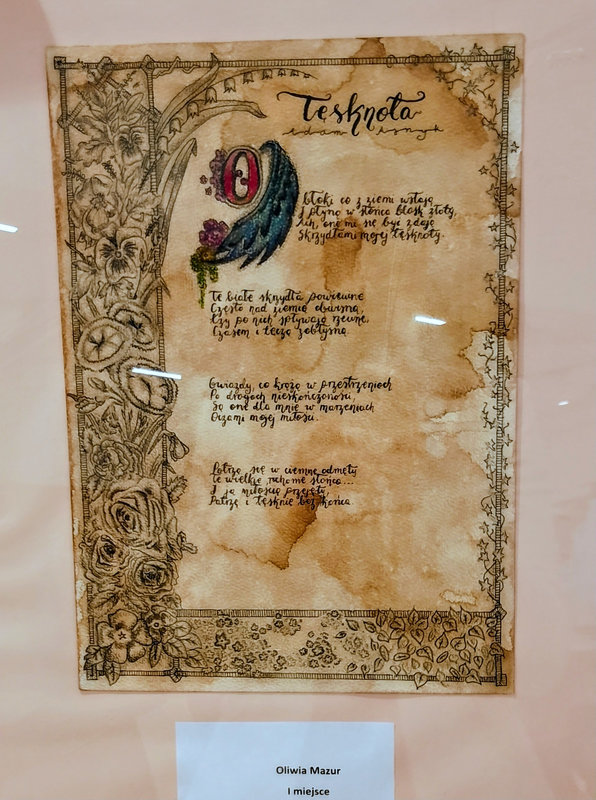 Tęsknota
adam asnyk
Obłoki co z ziemi wstają
I płyną w słońca blask złoty,
Ach, one mi się być zdają
Skrzydłami mojej tęsknoty.
Te białe skrzydła powiewne
Często nad ziemią obwisną,
Łzy po nich spływają rzewne,
Czasem i tęczą zabłysną.
Gwiazdy, co krążą w przestrzeniach
Po drogach nieskończoności,
Są one dla mnie w marzeniach
Oczami mojej miłości.
Patrzą się w ciemne odmęty
Te wielkie, ruchome słońca...
I ja miłością przejęty,
Patrzę i tęsknię bez końca.
Oliwia Mazur
I miejsce